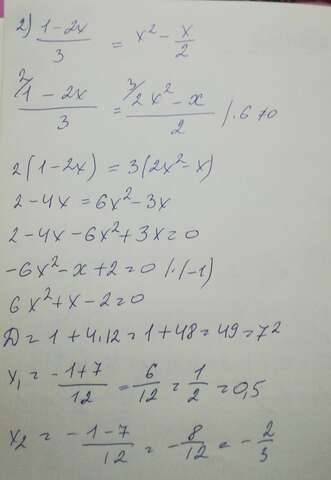 2) (1-2x)/3 = x² - x/2
²⁾(1-2x)/3 = ³⁾(2x²-x)/2 / ·6≠0
2(1-2x) = 3(2x²-x)
2-4x = 6x²-3x
2-4x-6x²+3x=0
-6x²-x+2=0 /·(-1)
6x²+x-2=0
D = 1+4·12=1+48=49=7²
x₁ = -1+7/12 = 6/12 = 1/2 = 0,5
x₂ = -1-7/12 = -8/12 = -2/3